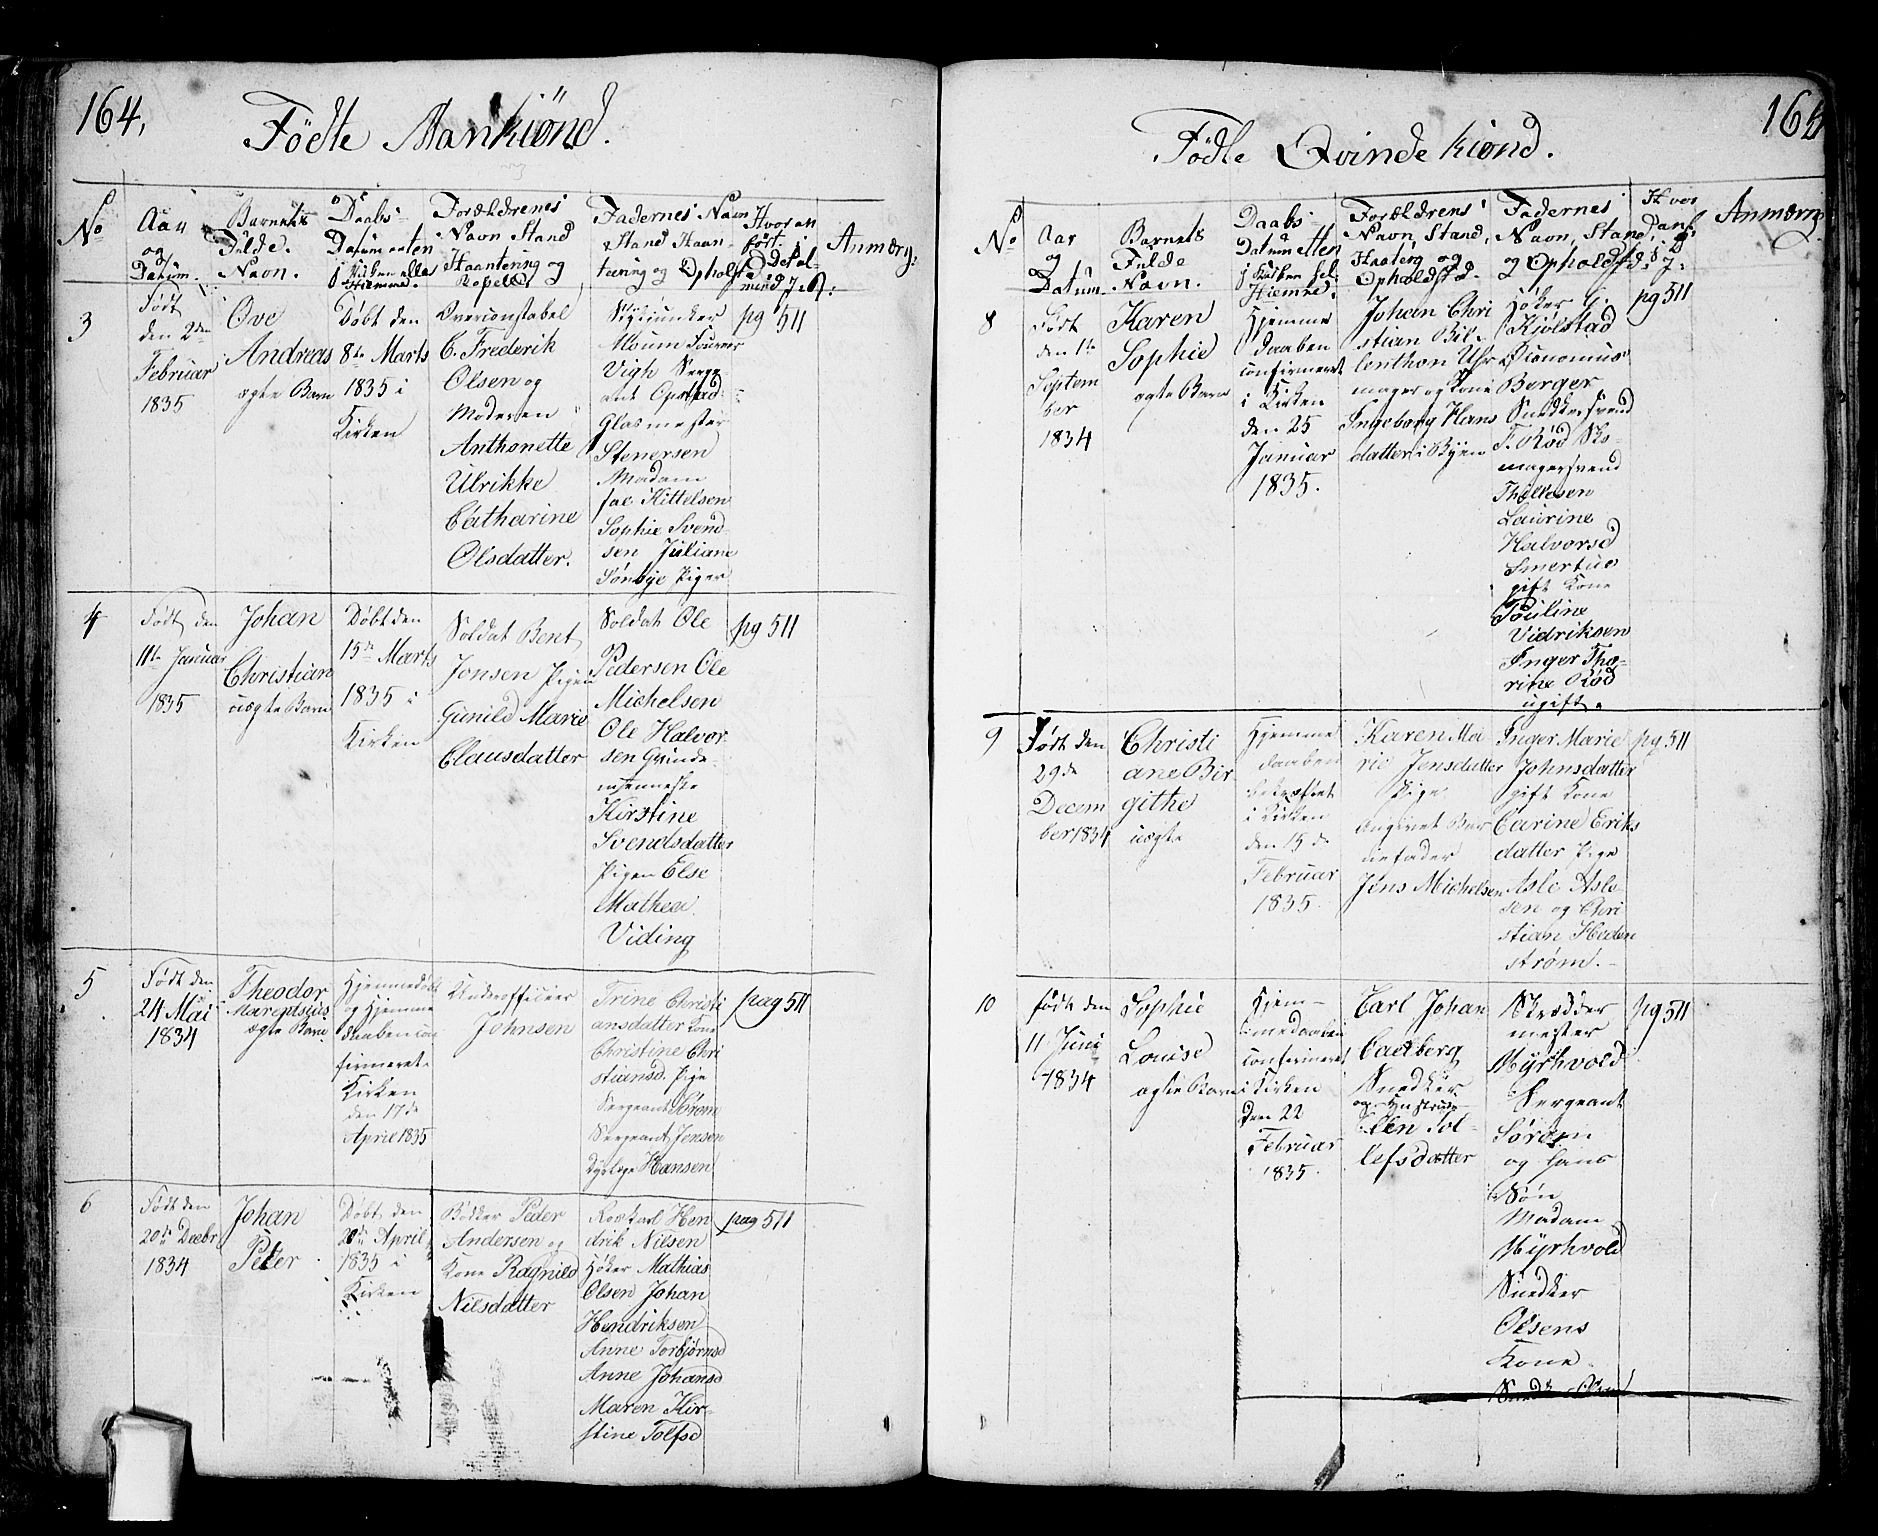 164,
Fødte Mankiønd.
No
Aar
og
Datum.
Barnets
Fulde
Navn.
Daabs-
Datum enten
i Kirken eller
Hiemme.
Forældrenes
Navn Stand
Haantering og
Fadernes Navn
Stand Haan-
tering og Opholst
Anmærg:
3
Født
den 2den
Februar
1835
Ove
Andreas
ægte Barn
Døbt den
8de Marts
1835 i
Kirken
Overconstabel
C. Frederik
Olsen og
Moderen
Anthonette
Ulrikke
Catharine
Olsdatter.
Vigh
Glasmester
Stenersen
Madam
Kittelsen
Sophie Svend-
sen Juliane
Sønbye Piger
pg 511
4
Født den
11te Januar
1835
Johan
Christian
uægte Barn
Døbt den
15de Marts
1835 i
Kirken
Soldat Bent
Jonsen Pigen
Gunild Marie
Clausdatter
Soldat Ole
Pedersen Ole
Michelsen
Ole Halvor
sen Qvinde-
menneske
Kirstine
Svendsdatter
Pigen Else
Mathea
Viding
pg 511
5
Født den
24 Mai
1834
Theodor
Marentsius
ægte Barn
Hjemmedøbt
og Hjemme
daaben con
firmeret
Kirken
den 17de
April 1835
Underofficeer
Johnsen
Trine Christi
ansdatter Kone
Christine Chri
stiansd. Pige
Sergeant Sørom
Sergeant Jensen
Hansen
pag 511
6
Født den
20de Decbr
1834
Johan
Peter
Døbt den
20de April
1835 i
Kirken
Bødker Peder
Andersen og
Kone Ragnild
Nilsdatter
Hen
drik Nilsen
Høker Mathias
Olsen Johan
Hendriksen
Anne Torbjørnsd
Anne Johansd
Maren Kir-
stine Tolfsd
pag 511
165
Fødte Qvindekiønd.
No
Aar
og
Datum
Barnets
Fulde
Navn.
Daabs-
Datum etten
i Kirken hel
Hiemme.
Forældrens
Navn, Stand,
Opholdst.
Fadernes
Navn, Stand,
og Opholdst.
Hvor
Anmærg
8
Født
den 1te
Septem
ber
1834
Karen
Sophie
ægte Barn
Hjemme
daaben
confirmeret
i Kirken
den 25
Januar
1835.
Johan Chri
stian Bil-
lenthon Uhr
mager og Kone
Ingeborg Hans
datter i Byen
Høker G.
Kjølstad
Oeconomus
Berger
Snedkersvend
F. Rød Sko-
magersvend
Thollesen
Laurine
Halvorsd
gift Kone
Pouline
Vidriksen
Inger Tho-
rine Rød
ugift.
pg 511
9
Født den
29de
Decem
ber 1834
Christi
ane Bir
githe
uægte
Hjemme
daaben
bekræftet
i Kirken
den 15de
Februar
1835.
Karen Ma
rie Jensdatter
Pige
Angivet Bar
nefader
Jens Michelsen
Inger Marie
Johnsdatter
gift Kone
Carine Eriks
datter Pige
Asle Asle-
sen og Chri
stian Heden
strøm.
pg 511
10
født den
11 Juni
1834
Sophie
Louise
ægte Barn
Hjem-
medaaben
confirmeret
i Kirken
den 22
Februar
1835.
Carl Johan
Snedker
og Hustrue
Ellen Tol-
lefsdatter
Skrædder
mester
Myrhvold
Sergeant
Sørom
og hans
Søn
Madam
Myrhvold
Snedker
Olsens
Kone
pg 511